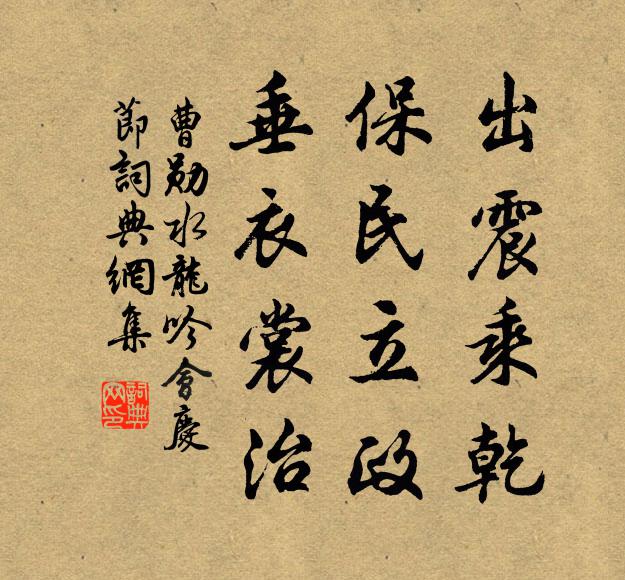 出震乘乾
保民立政
垂衣裳治
曹勛水龍吟會慶
節詞典網集
詞典网印